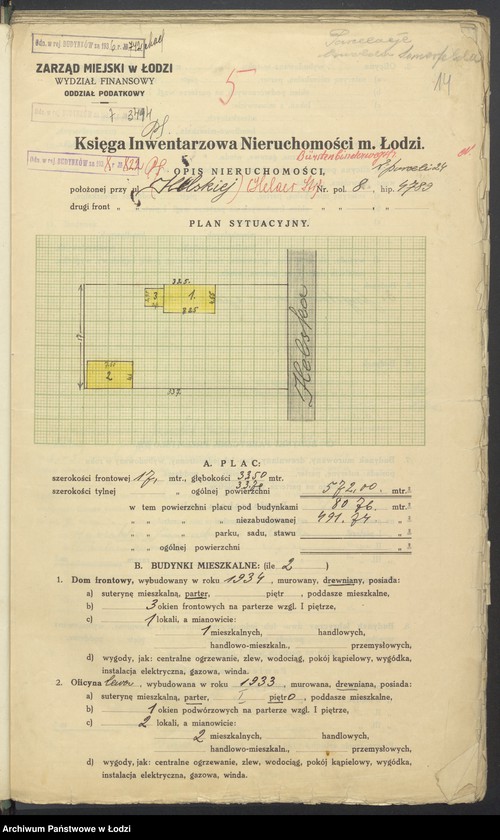 Odn. w rej. BUDYNKÓW za 193
14
5
ZARZĄD MIEJSKI w ŁODZI
WYDZIAŁ FINANSOWY
ODDZIAŁ PODATKOWY
Księga Inwentarzowa Nieruchomości m. Łodzi.
Odn. w rej. BUDYNKÓW za 193
OPIS NIERUCHOMOŚCI,
położonej przy (Helskiej) Nr. pol. 8, hip. 4789
drugi front „ „ „ „ „ „
PLAN SYTUACYJNY.
1.
3
2
17
Helska
A. PLAC:
szerokości frontowej 17,- mtr., głębokości 33.50 mtr.
szerokości tylnej „ ogólnej powierzchni 572,00. mtr.²
w tem powierzchni placu pod budynkami 80 76. mtr.²
„ „ „ „ niezabudowanej 491.24 „ ²
„ „ „ „ parku, sadu, stawu „ ²
„ „ ogólnej powierzchni „ ²
B. BUDYNKI MIESZKALNE: (ile 2 )
1. Dom frontowy, wybudowany w roku 1934, murowany, drewniany, posiada:
a) suterynę mieszkalną, parter, piętr , poddasze mieszkalne,
b) 3 okien frontowych na parterze wzgl. I piętrze,
c) 1 lokali, a mianowicie:
1 mieszkalnych, handlowych,
handlowo-mieszkaln., przemysłowych,
d) wygody, jak: centralne ogrzewanie, zlew, wodociąg, pokój kąpielowy, wygódka,
instalacja elektryczna, gazowa, winda.
2. Oficyna lewa, wybudowana w roku 1933, murowana, drewniana, posiada:
a) suterynę mieszkalną, parter, I piętro, poddasze mieszkalne,
b) 1 okien podwórzowych na parterze wzgl. I piętrze,
c) 2 lokali, a mianowicie:
2 mieszkalnych, handlowych,
handlowo-mieszkaln., przemysłowych,
d) wygody, jak: centralne ogrzewanie, zlew, wodociąg, pokój kąpielowy, wygódka,
instalacja elektryczna, gazowa, winda.
Archiwum Państwowe w Łodzi